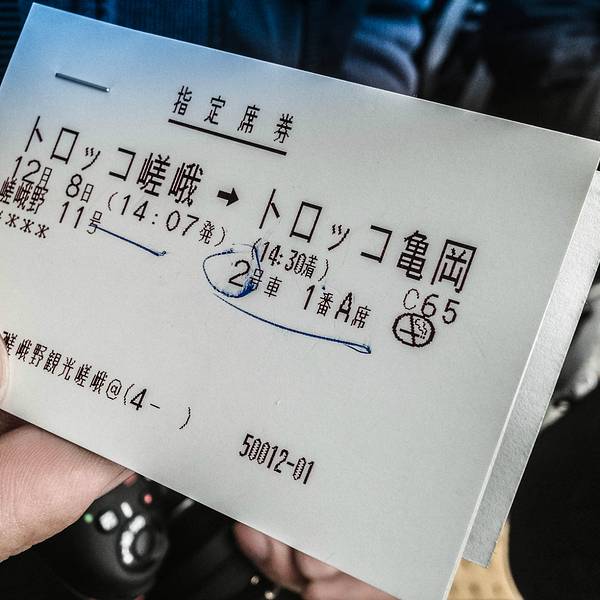 指定席券
トロッコ嵯峨 ➡ トロッコ亀岡
12月 8日 (14:07発) (14:30着) C65
嵯峨野 11号 2号車 1番A席
****
嵯峨野観光嵯峨@(4- )
50012-01